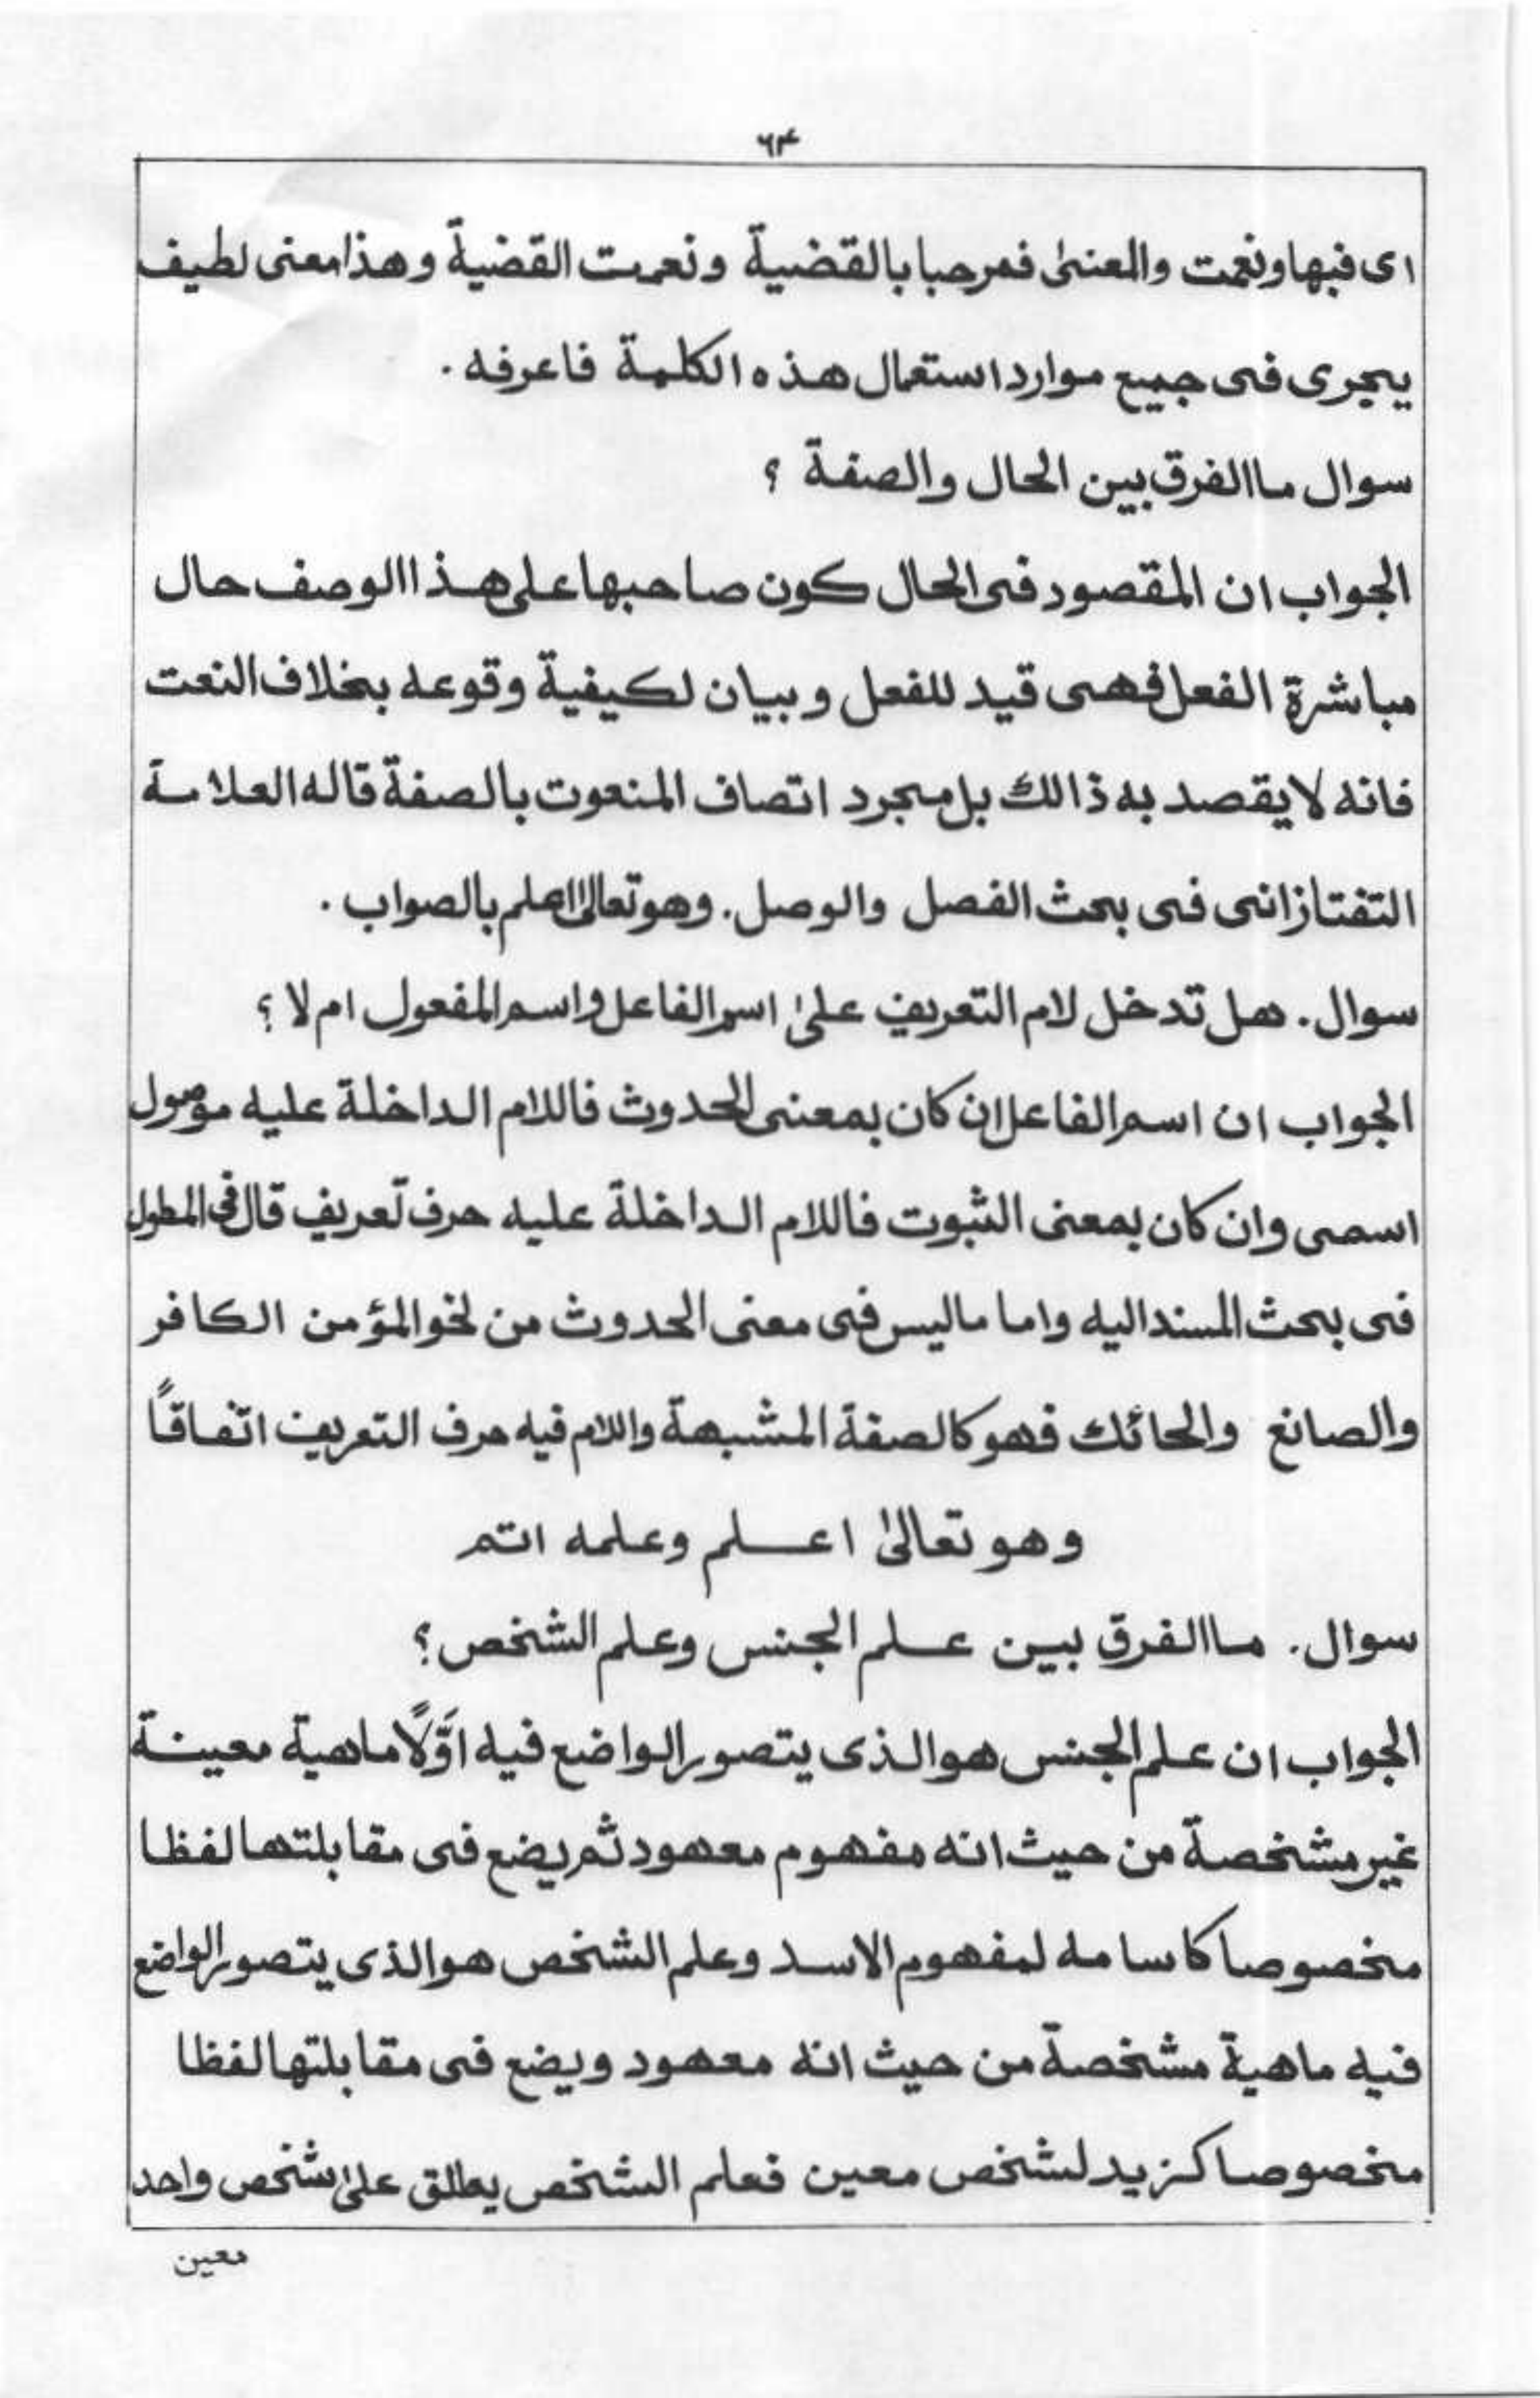 ۶۴
ای فبها ونعمت والمعنیٰ فمرحبا بالقضیة ونعمت القضیة وهذا معنی لطیف
یجری فی جمیع موارد استعمال هذه الکلمة فاعرفه .
سوال ما الفرق بین الحال والصفة ؟
الجواب ان المقصود فی الحال کون صاحبها علی هذا الوصف حال
مباشرة الفعل فهی قید للفعل و بیان لکیفیة وقوعه بخلاف النعت
فانه لا یقصد به ذالك بل مجرد اتصاف المنعوت بالصفة قاله العلامة
التفتازانی فی بحث الفصل والوصل . وهو تعالیٰ اعلم بالصواب .
سوال . هل تدخل لام التعریف علیٰ اسم الفاعل واسم المفعول ام لا ؟
الجواب ان اسم الفاعل ان کان بمعنی الحدوث فاللام الداخلة علیه موصول
اسمی وان کان بمعنی الثبوت فاللام الداخلة علیه حرف تعریف قال فی المطول
فی بحث المسند الیه واما ما لیس فی معنی الحدوث من نحو المؤمن الکافر
والصانع والحائك فهو کالصفة المشبهة واللام فیه حرف التعریف اتفاقاً
وهو تعالیٰ اعلم وعلمه اتم
سوال . ما الفرق بین علم الجنس وعلم الشخص ؟
الجواب ان علم الجنس هو الذی یتصور الواضع فیه اوّلاً ماهیة معینة
غیر مشخصة من حیث انه مفهوم معهود ثم یضع فی مقابلتها لفظا
مخصوصا کاسامه لمفهوم الاسد وعلم الشخص هو الذی یتصور الواضع
فیه ماهیة مشخصة من حیث انه معهود ویضع فی مقابلتها لفظا
مخصوصا کزید لشخص معین فعلم الشخص یطلق علیٰ شخص واحد
معین